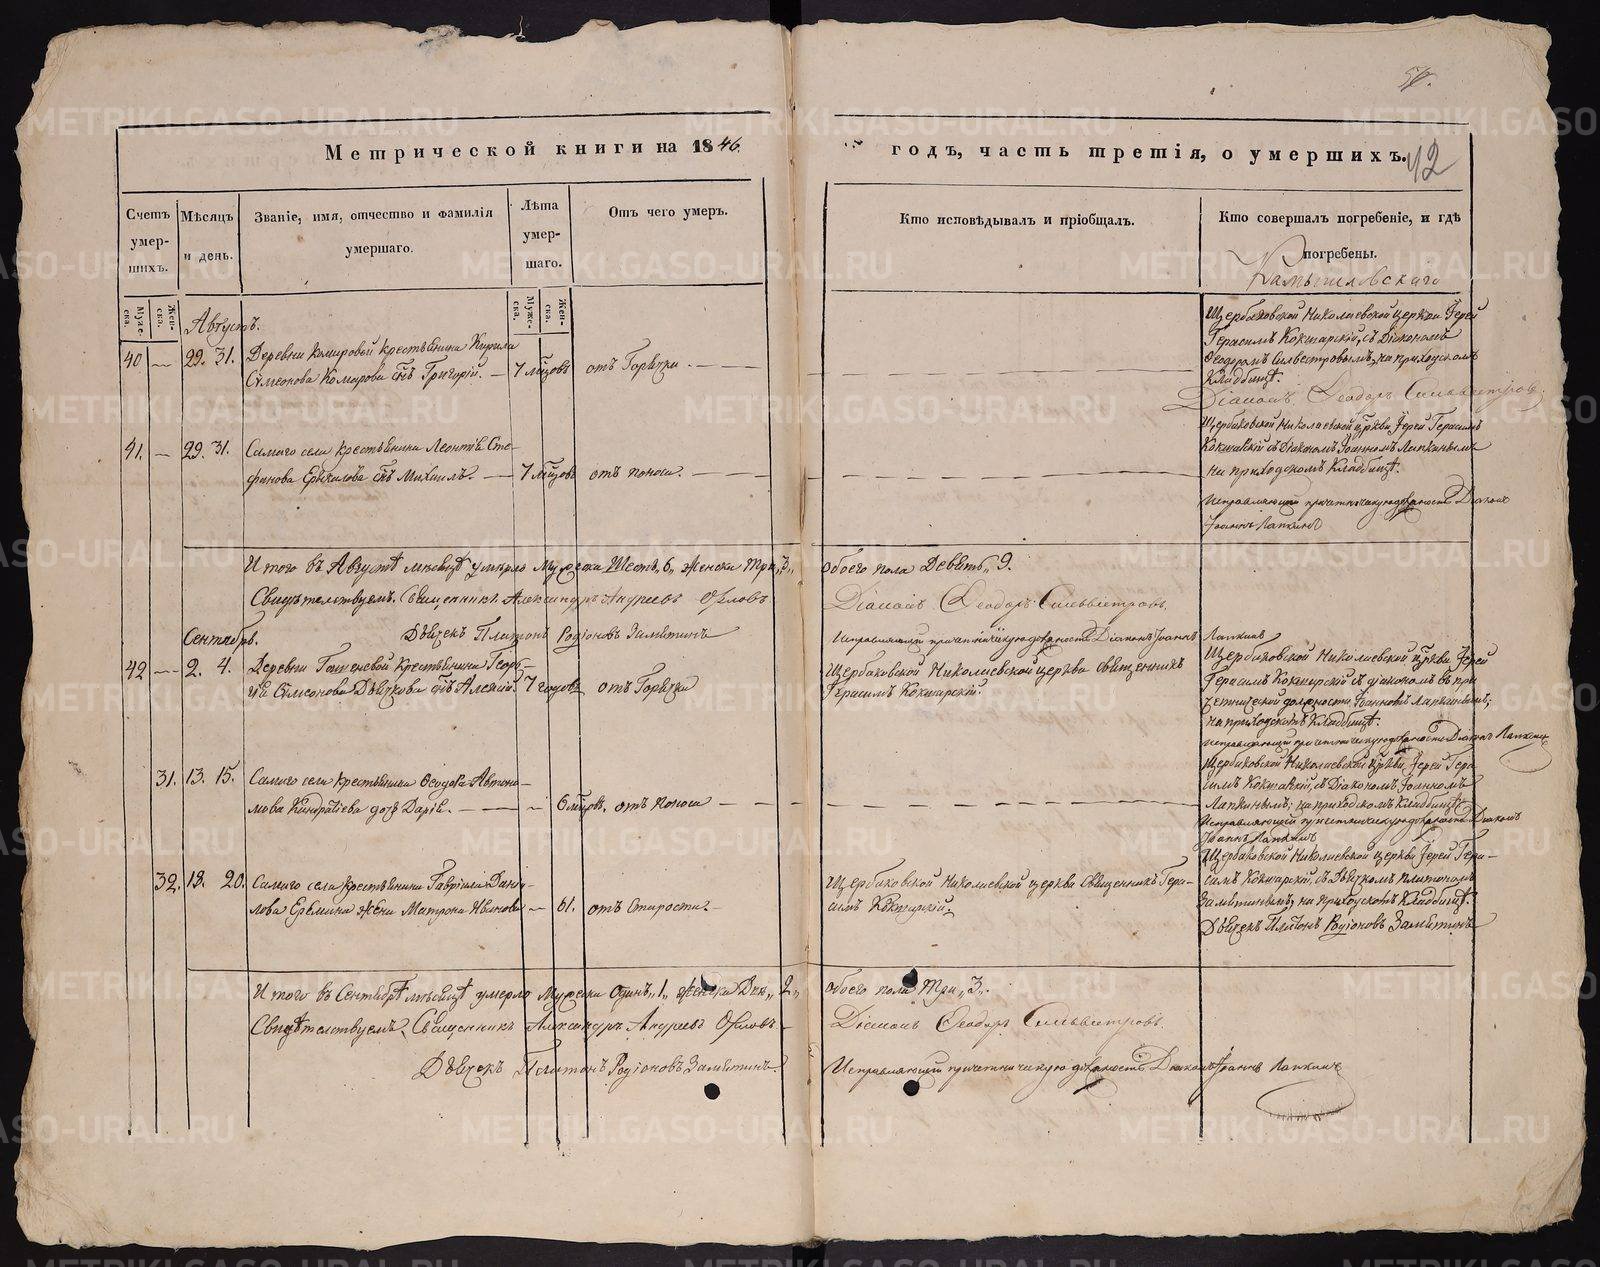 54.
Метрической книги на 1846.
годъ, часть третія, о умершихъ.
42
Счетъ умер-шихъ.
Мѣсяцъ и день.
Званіе, имя, отчество и фамилія умершаго.
Лѣта умер-шаго.
Отъ чего умеръ.
Кто исповѣдывалъ и пріобщалъ.
Кто совершалъ погребеніе, и гдѣ погребены.
Камышловскаго
Муже-ска.
Жен-ска.
Муже-ска.
Жен-ска.
Августъ.
40 — 29. 31. Деревни Комаровой крестьянина Кирила
Сѵмеонова Комарова сынъ Григорій. — 7 мѣсяцовъ отъ Горячки.
Щербаковской Николаевской церкви Іерей
Герасимъ Кокшарскій, съ Діакономъ
Ѳеодоромъ Сильвестровымъ, на приходскомъ
Кладбищѣ.
Діаконъ Ѳеодоръ Сильвестровъ.
41. — 29. 31. Самаго села крестьянина Леонтія Сте-
фанова сынъ Михаилъ. — 7 мѣсяцовъ отъ поноса.
Щербаковской Николаевской церкви Іерей Герасимъ
Кокшарскій съ Діакономъ Іоанномъ Лапкинымъ
на приходскомъ Кладбищѣ.
Исправляющій причетническую должность Діаконъ
Іоаннъ Лапкинъ
Итого въ Августѣ мѣсяцѣ умерло Мужеска Шесть „6„ женска три „3„ обоего пола Девять „9.
Свидѣтельствуемъ. Священникъ Александръ Андреевъ Орловъ
Діаконъ Ѳеодоръ Сильвестровъ.
Дьячекъ Платонъ Родіоновъ Замятинъ
Исправляющій причетническую должность Діаконъ Іоаннъ Лапкинъ
Сентябрь.
42 — 2. 4. Деревни крестьянина Геор-
гія Сѵмеонова Дьячкова сынъ Алексій 7 годовъ отъ Горячки
Щербаковской Николаевской церкви священникъ
Герасимъ Кокшарскій.
Щербаковской Николаевской церкви Іерей
Герасимъ Кокшарскій съ діакономъ въ при
четнической должности Іоанномъ Лапкинымъ;
на приходскомъ Кладбищѣ.
Исправляющій причетническую должность Діаконъ Лапкинъ
31. 13. 15. Самаго села крестьянина Ѳеодота Автоно-
мова Кондратіева дочь Дарія. — 6 мѣсяцовъ. отъ поноса
Щербаковской Николаевской церкви, Іерей Гера
симъ Кокшарскій, съ Діакономъ Іоанномъ
Лапкинымъ; на приходскомъ Кладбищѣ
Исправляющій причетническую должность Діаконъ
Іоаннъ Лапкинъ
32. 18. 20. Самаго села крестьянина Гавріила Дани-
лова Еремина жена Матрона Иванова — 61. отъ Старости.
Щербаковской Николаевской церкви Священникъ Гера-
симъ Кокшарскій;
Щербаковской Николаевской церкви Іерей Гера-
симъ Кокшарскій, съ Дьячкомъ Платономъ
Замятинымъ, на приходскомъ Кладбищѣ.
Дьячекъ Платонъ Родіоновъ Замятинъ
Итого въ Сентябрѣ мѣсяцѣ умерло Мужеска Одинъ „1„ женска Два „2„ обоего пола Три „3„.
Свидѣтельствуемъ, Священникъ Александръ Андреевъ Орловъ
Діаконъ Ѳеодоръ Сильвестровъ
Дьячекъ Платонъ Родіоновъ Замятинъ.
Исправляющій причетническую должность Діаконъ Іоаннъ Лапкинъ